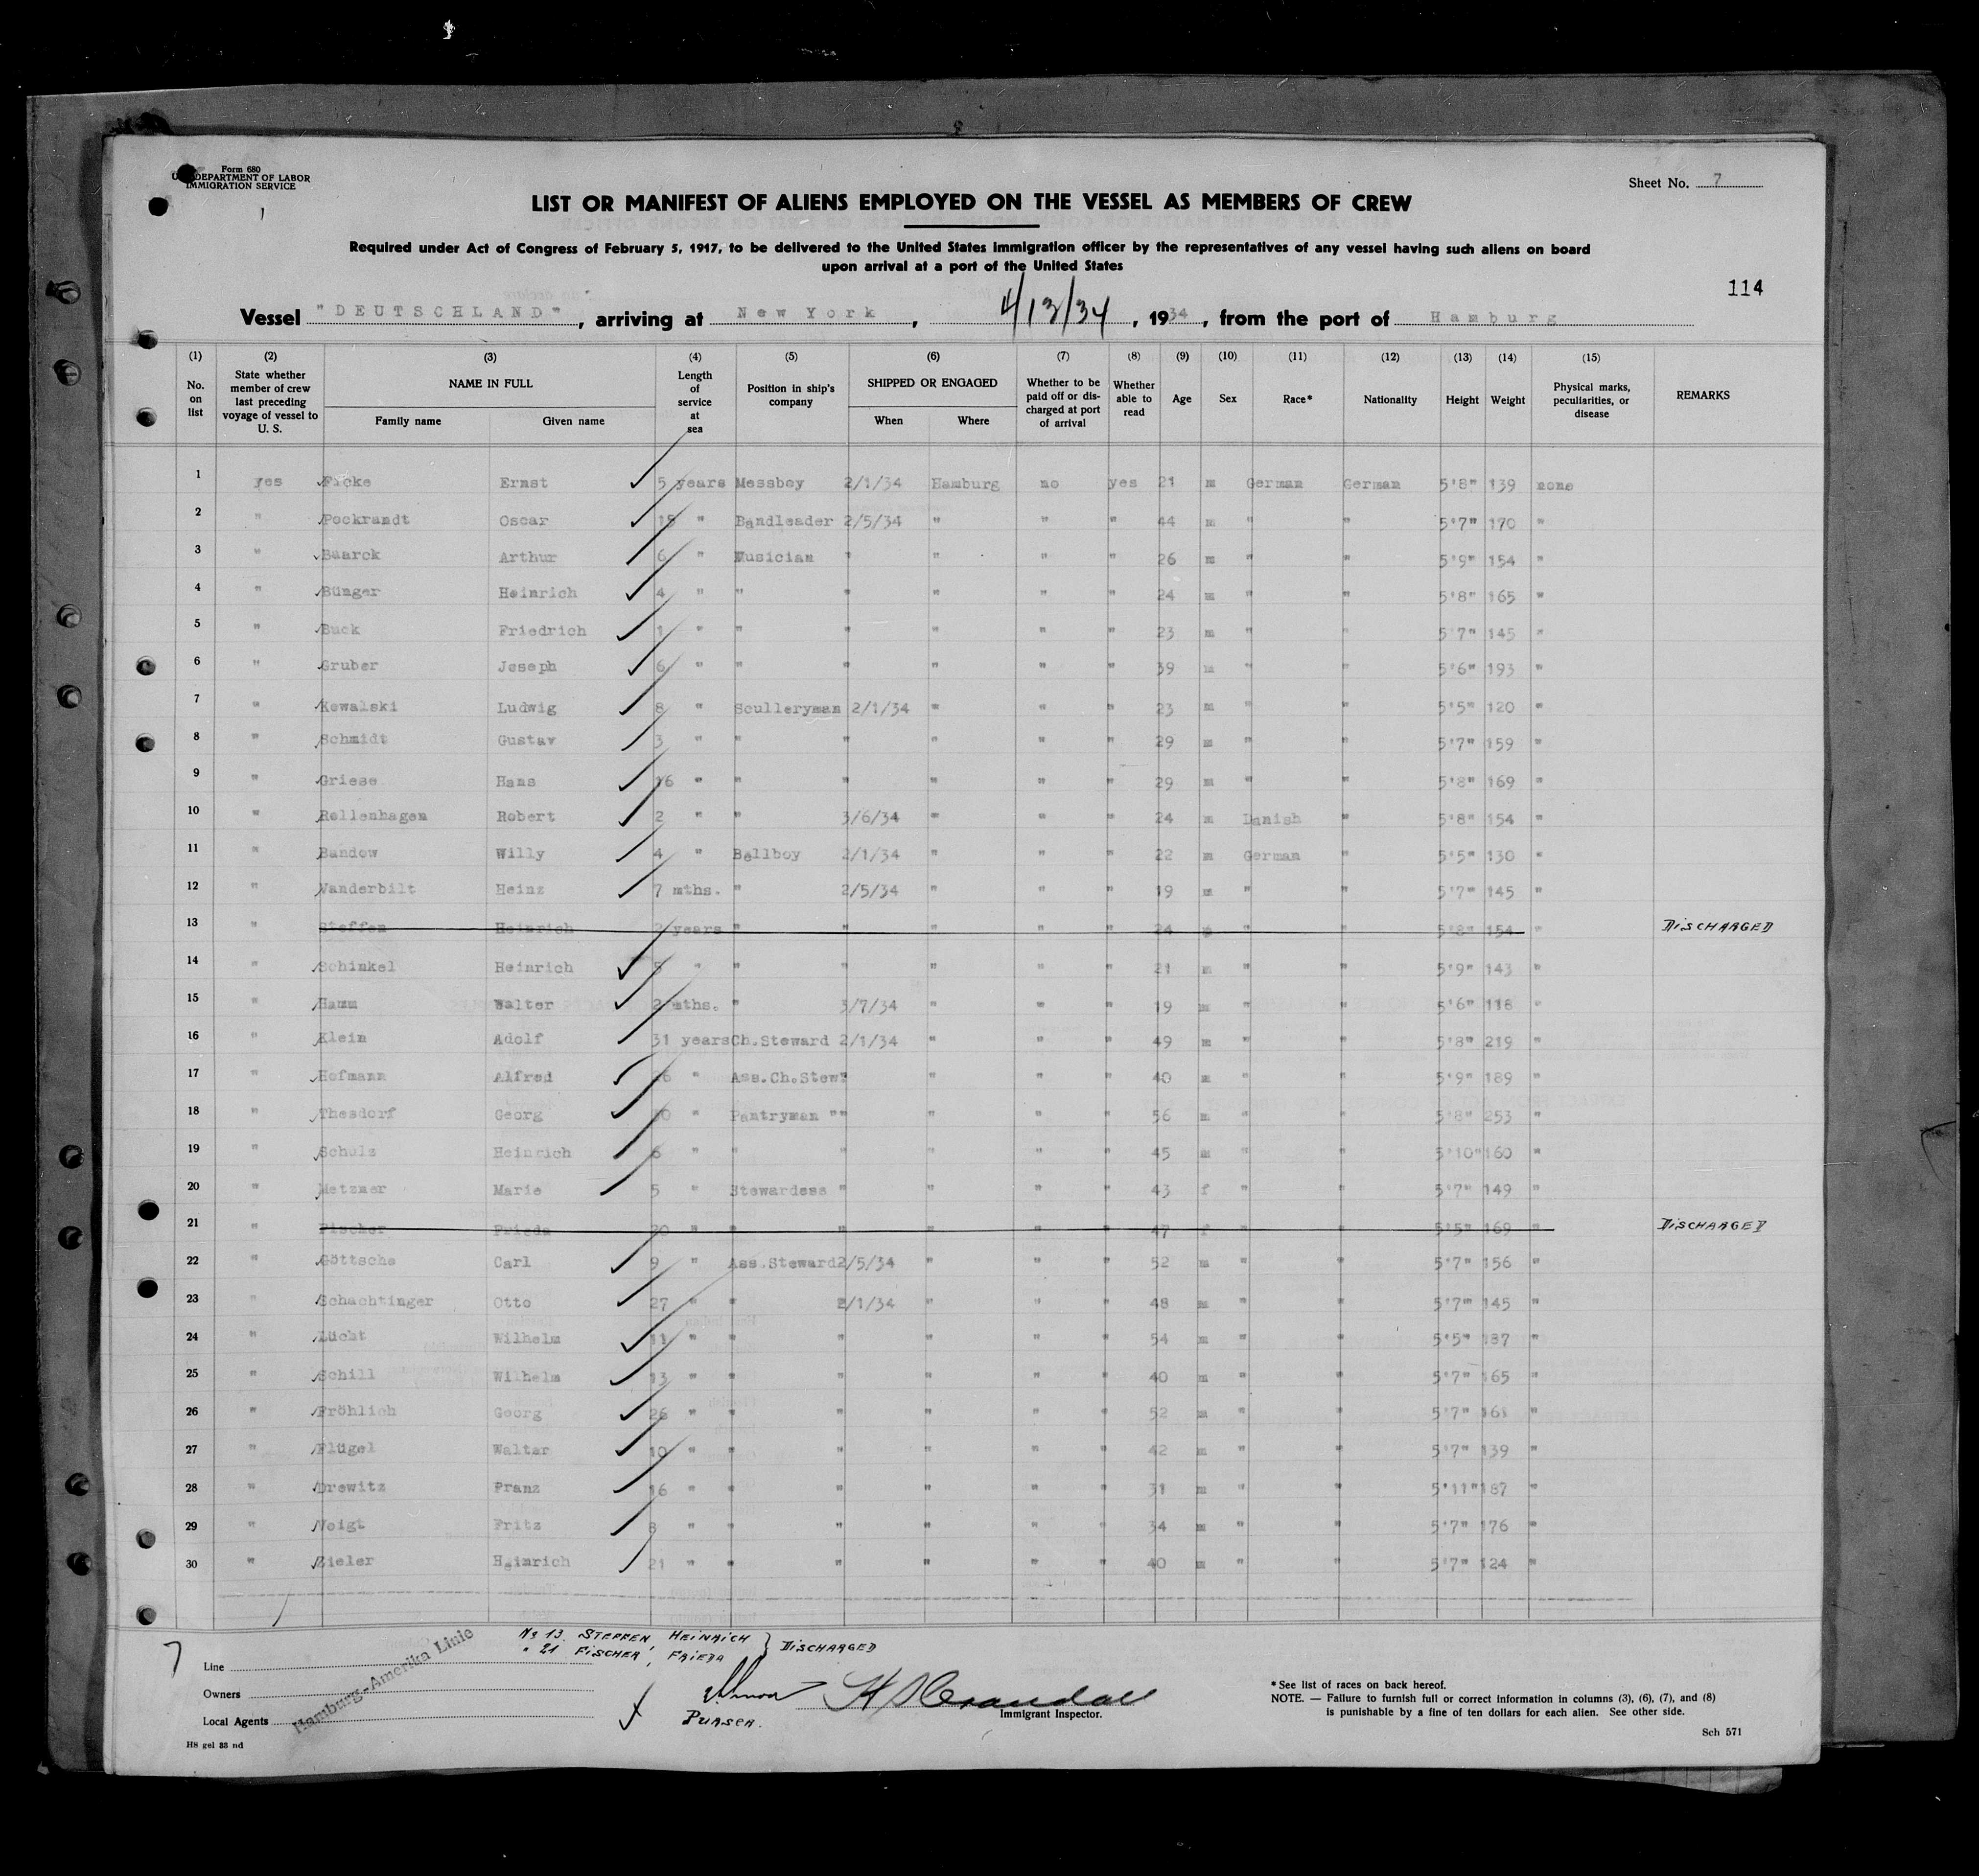 Form 680
DEPARTMENT OF LABOR
IMMIGRATION SERVICE
Sheet No. 7
LIST OR MANIFEST OF ALIENS EMPLOYED ON THE VESSEL AS MEMBERS OF CREW
Required under Act of Congress of February 5, 1917, to be delivered to the United States Immigration officer by the representatives of any vessel having such aliens on board
upon arrival at a port of the United States
114
Vessel "DEUTSCHLAND", arriving at New York, 4/13/34, 1934, from the port of Hamburg
(1) (2) (3) (4) (5) (6) (7) (8) (9) (10) (11) (12) (13) (14) (15)
No. on list | State whether member of crew last preceding voyage of vessel to U. S. | NAME IN FULL Family name Given name | Length of service at sea | Position in ship's company | SHIPPED OR ENGAGED When Where | Whether to be paid off or discharged at port of arrival | Whether able to read | Age | Sex | Race* | Nationality | Height | Weight | Physical marks, peculiarities, or disease | REMARKS
1 yes Ficke Ernst 5 years Messboy 2/1/34 Hamburg no yes 21 m German German 5'8" 139 none
2 " Pockrandt Oscar 15 " Bandleader 2/5/34 " " " 44 m " " 5'7" 170 "
3 " Baarck Arthur 6 " Musician " " " " 26 m " " 5'9" 154 "
4 " Bünger Heinrich 4 " " " " " " 24 m " " 5'8" 165 "
5 " Buck Friedrich 1 " " " " " " 23 m " " 5'7" 145 "
6 " Gruber Joseph 6 " " " " " " 39 m " " 5'6" 193 "
7 " Kowalski Ludwig 8 " Sculleryman 2/1/34 " " " 23 m " " 5'5" 120 "
8 " Schmidt Gustav 3 " " " " " " 29 m " " 5'7" 159 "
9 " Griese Hans 16 " " " " " " 29 m " " 5'8" 169 "
10 " Rollenhagen Robert 2 " " 3/6/34 " " " 24 m Danish " 5'8" 154 "
11 " Bandow Willy 4 " Bellboy 2/1/34 " " " 22 m German " 5'5" 130 "
12 " Vanderbilt Heinz 7 mths. " 2/5/34 " " " 19 m " " 5'7" 145 "
13 " Steffen Heinrich 2 years " " " " " 24 " " 5'8" 154 " DISCHARGED
14 " Schinkel Heinrich 5 " " " " " " 21 m " " 5'9" 143 "
15 " Hamm Walter 2 mths. " 3/7/34 " " " 19 m " " 5'6" 118 "
16 " Klein Adolf 31 years Ch.Steward 2/1/34 " " " 49 m " " 5'8" 219 "
17 " Hofmann Alfred 26 " Ass.Ch.Stew" " " " 40 m " " 5'9" 189 "
18 " Thesdorf Georg " Pantryman "" " " " 56 m " " 5'8" 253 "
19 " Scholz Heinrich 6 " " " " " " 45 m " " 5'10" 160 "
20 " Metzner Marie 5 " Stewardess " " " " 43 f " " 5'7" 149 "
21 " Fischer Frieda 20 " " " " " " 47 f " " 5'5" 169 " DISCHARGED
22 " Göttsche Carl 9 " Ass.Steward 2/5/34 " " " 52 m " " 5'7" 156 "
23 " Schachtinger Otto 27 " " 2/1/34 " " " 48 m " " 5'7" 145 "
24 " Lücht Wilhelm 11 " " " " " " 54 m " " 5'5" 187 "
25 " Schill Wilhelm 13 " " " " " " 40 m " " 5'7" 165 "
26 " Fröhlich Georg 26 " " " " " " 52 m " " 5'7" 161 "
27 " Flügel Walter 10 " " " " " " 42 m " " 5'7" 139 "
28 " Drewitz Franz 16 " " " " " " 31 m " " 5'11" 187 "
29 " Voigt Fritz 8 " " " " " " 34 m " " 5'7" 176 "
30 " Zieler Heinrich 21 " " " " " " 40 m " " 5'7" 124 "
No 13. STEFFEN, HEINRICH } DISCHARGED
" 21 FISCHER, FRIEDA
7
Line
Owners
Local Agents
Hamburg-Amerika Linie
PURSER.
H Crandall
Immigrant Inspector.
* See list of races on back hereof.
NOTE. — Failure to furnish full or correct information in columns (3), (6), (7), and (8)
is punishable by a fine of ten dollars for each alien. See other side.
HS gel 33 nd
Sch 571